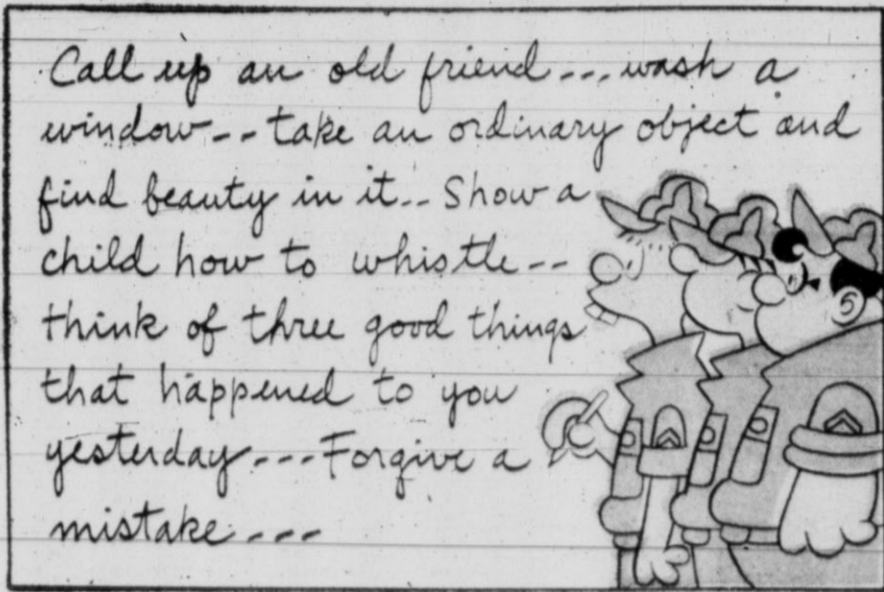 Call up an old friend... wash a
window-- take an ordinary object and
find beauty in it.. Show a
child how to whistle--
think of three good things
that happened to you
yesterday--- Forgive a
mistake----